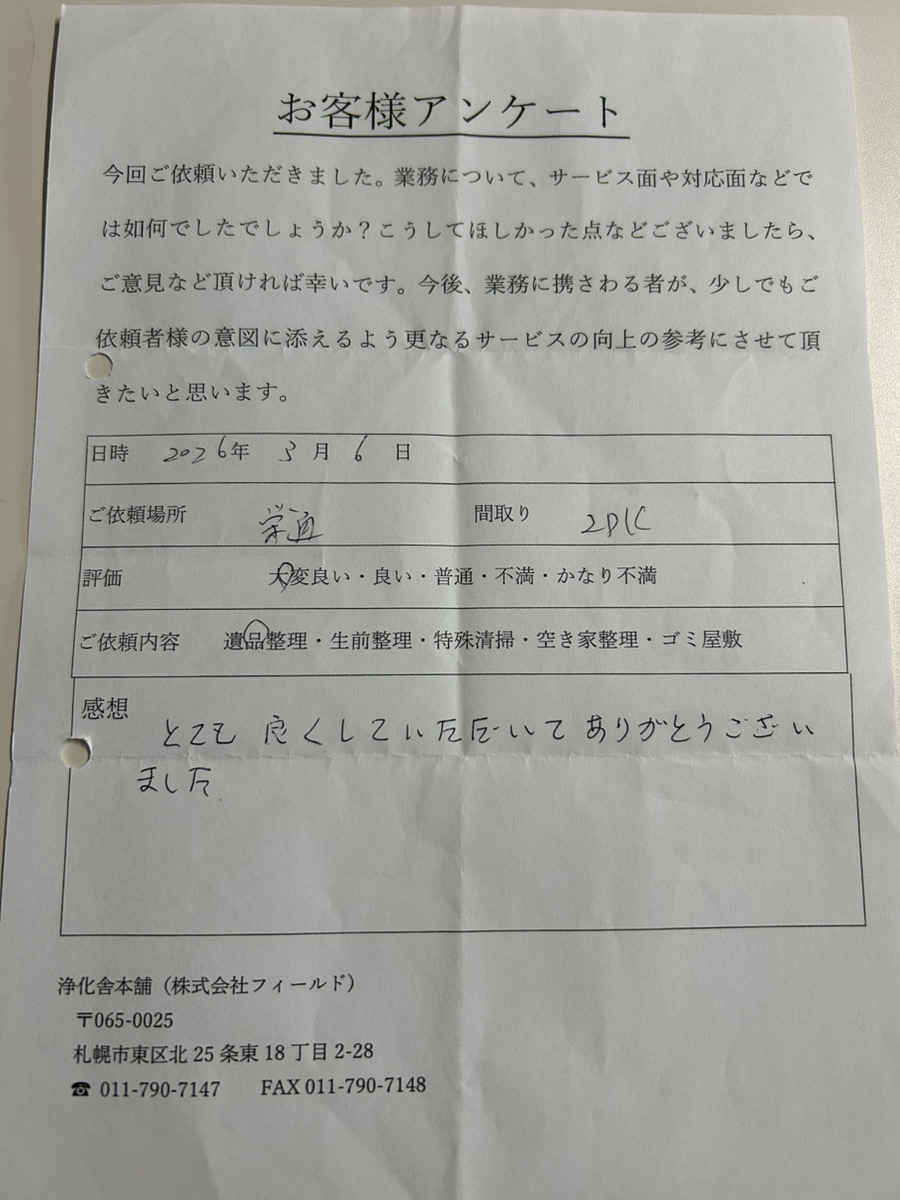 お客様アンケート
今回ご依頼いただきました。業務について、サービス面や対応面などで
は如何でしたでしょうか？こうしてほしかった点などございましたら、
ご意見など頂ければ幸いです。今後、業務に携さわる者が、少しでもご
依頼者様の意図に添えるよう更なるサービスの向上の参考にさせて頂
きたいと思います。
日時 2026年 3月 6日
ご依頼場所 栄通 間取り 2DK
評価 大変良い・良い・普通・不満・かなり不満
ご依頼内容 遺品整理・生前整理・特殊清掃・空き家整理・ゴミ屋敷
感想
とても良くしていただいてありがとうござい
ました
浄化舎本舗（株式会社フィールド）
〒065-0025
札幌市東区北25条東18丁目2-28
☎ 011-790-7147 FAX 011-790-7148